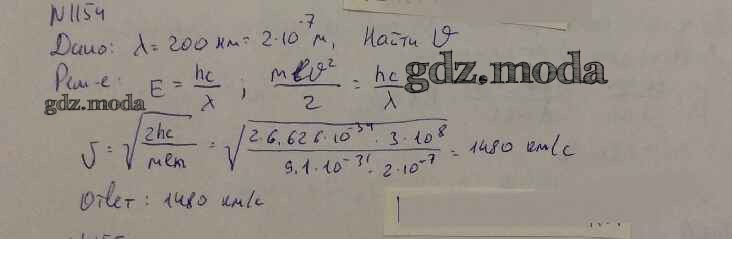 N1154
Дано: λ = 200 нм = 2·10⁻⁷ м, Найти ϑ
Реш-е: E = hc/λ ; mϑ²/2 = hc/λ
gdz.moda
gdz.moda
ϑ = √(2hc/mλ) = √(2·6,626·10⁻³⁴·3·10⁸ / 9,1·10⁻³¹·2·10⁻⁷) = 1480 км/с
Ответ: 1480 км/с